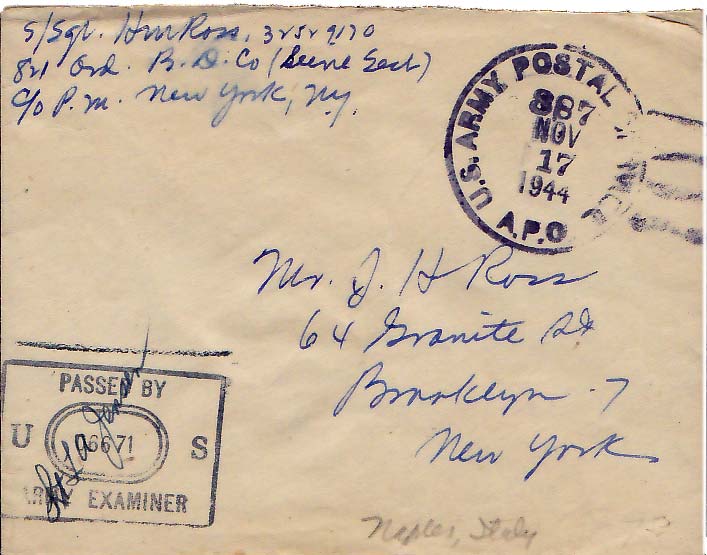 S/Sgt. HmRoss, 32529170
841 Ord. B. D. Co (Seine Sect)
C/o P.M. New York, Ny.
U.S. ARMY POSTAL
887
NOV
17
1944
A.P.O
Mr. J. H Ross
64 Granite St
Brooklyn 7
New York
PASSED BY
U 6671 S
ARMY EXAMINER
Naples, Italy